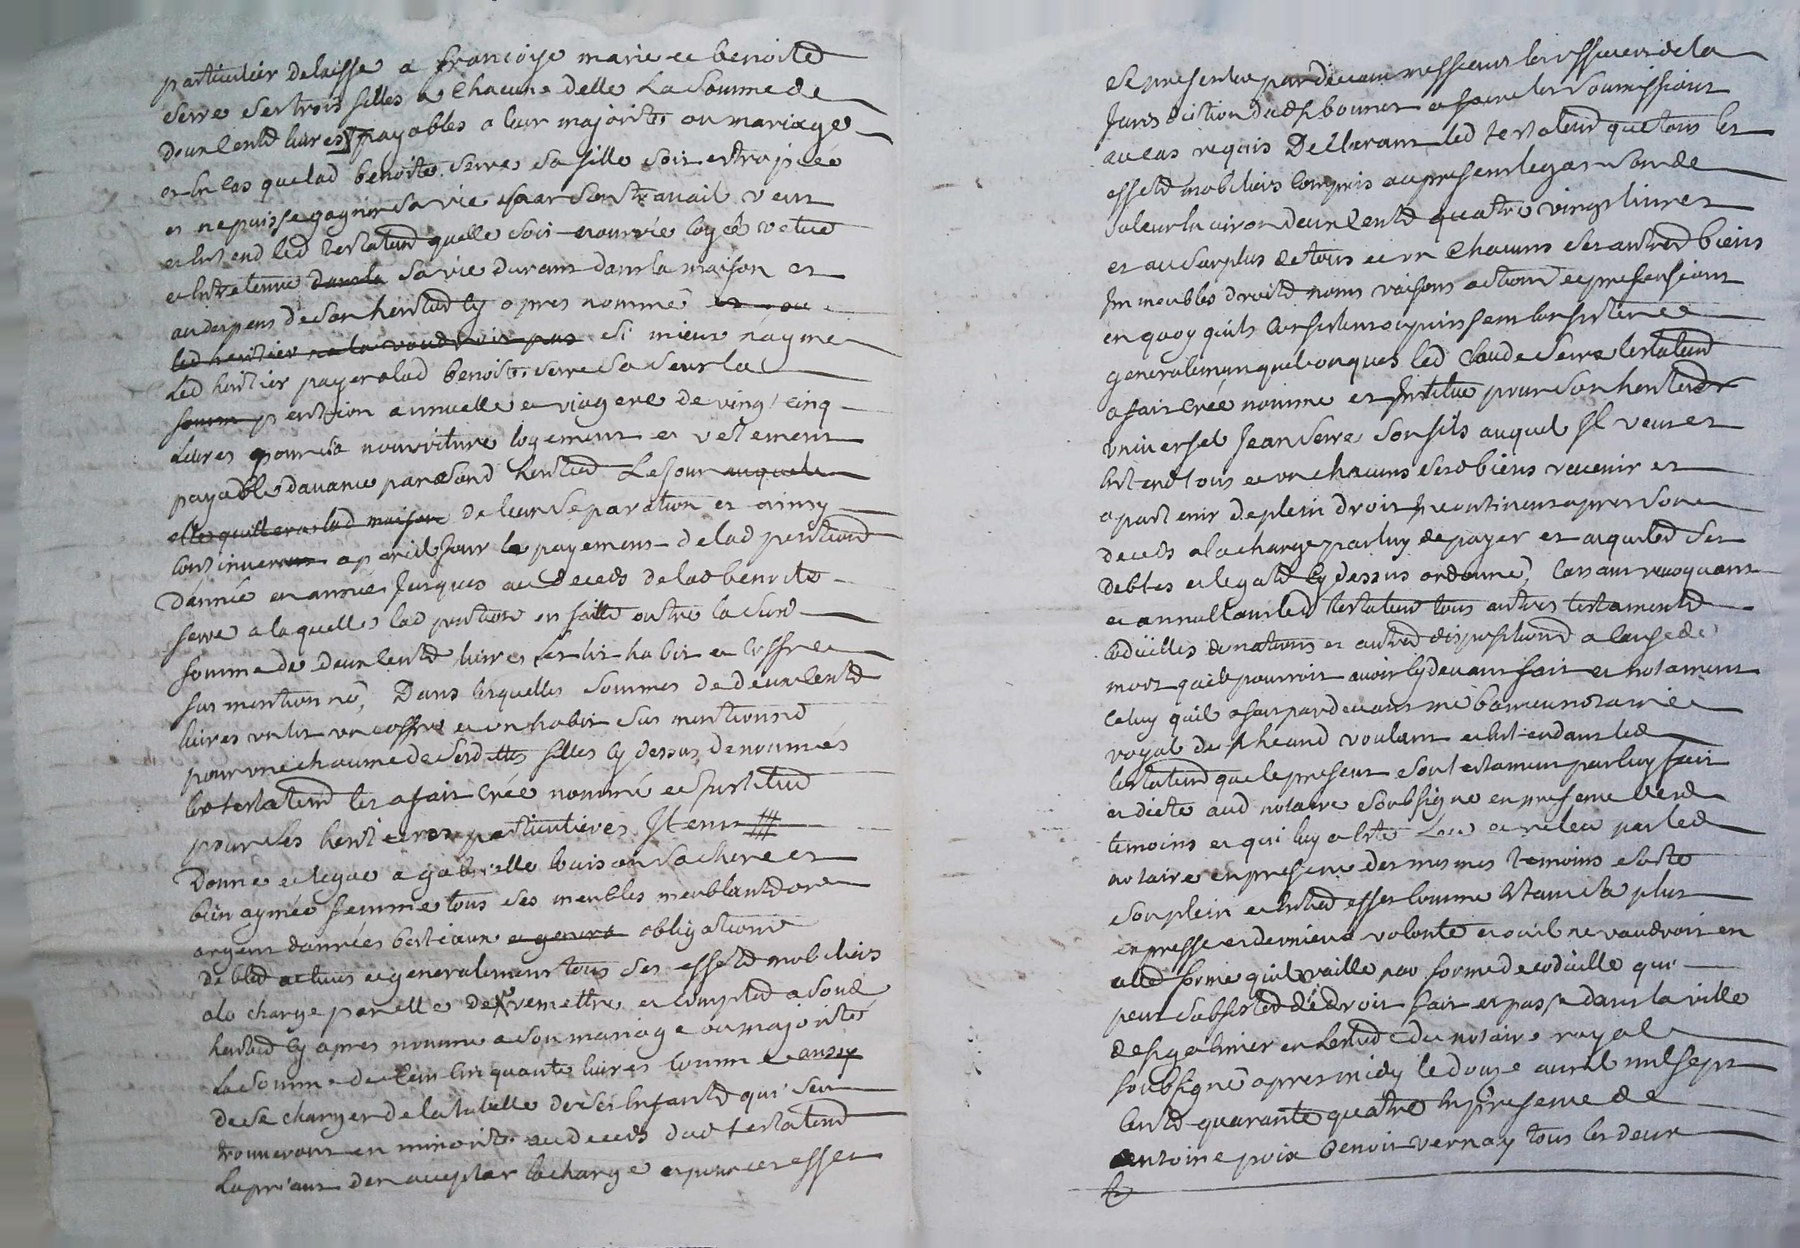 particulier delaisse a francoise marie et benoite
serre ses trois filles a chacune delle la somme de
deux cents livres payables a leur majorité ou mariage
et en cas que lad benoite serre sa fille soit estropiée
et ne puisse gagner sa vie par son travail veut
et entend led testateur quelle soit nourrie logée vetue
et entretenue dans la sa vie durant dans la maison et
au depens de son heritier cy apres nommé et ou
led heritier ne la voudroit pas si mieux n'ayme
led heritier payer a lad benoite serre sa seur la
somme pention annuelle et viagere de vingt cinq
livres pour sa nourriture logement et vetement
payable davance par sond heritier le jour auquel
elle quittera lad maison de leur separation et ainsy
continuer a pareil jour le payement de lad pention
dannée en année jusques au deceds de lad benoite
serre a laquelle lad pention en faite outre la sud
somme de deux cents livres ses lit habit et coffre
sus mentionné, Dans lesquelles sommes de deux cents
livres un lit un coffre et un habit sus mentionné
pour une chacune de sesdittes filles cy dessus denommées
led testateur les a fait créé nommé et institué
pour ses heritieres particulieres Item
Donne et legue a gabrielle buisson sa chere et
bien aymée femme tous ses meubles meublants or
argent danrées bestiaux et genera obligations
debtes actives et generalement tous ses effets mobiliers
a la charge par elle de remettre et compter a sond
heritier cy apres nommé a son mariage ou majorité
la somme de cent cinquante livres comme aussy
de se charger de la tutelle de ses enfants qui se
trouveront en minorité au deceds dud testateur
la priant den accepter la charge et pour cet effet
se presenter par devant messieurs les officiers de la
jurisdiction dud bourner a faire les soumissions
au cas requis Declarant led testateur que tous les
effets mobiliers compris au present legat sont de
valeur environ deux cents quatre vingt livres
et au surplus de tous et un chacuns ses autres biens
immeubles droits noms raisons actions et pretentions
en quoy quils consistent ou puissent consister et
generalement quelconques led Claude Serre testateur
a fait créé nommé et institué pour son heritier
universel Jean Serre son fils auquel il veut et
entend tous et un chacuns sesd biens revenir et
apartenir de plein droit incontinent apres son
deceds a la charge par luy de payer et acquitter ses
debtes et legats cy dessus ordonné, Cassant revoquant
et annullant led testateur tous autres testaments
codicilles donations et autres dispositions a cause de
mort quil pourroit avoir cy devant fait et notament
celuy quil a fait par devant me notaire
royal de voulant et entendant led
testateur que le present son testament par luy fait
et dicté aud notaire soubsigné en presence desd
temoins et qui luy a été leu et releu par led
notaire en presence des mesmes temoins sorte
son plein et entier effet comme étant sa plus
expresse et derniere volonté et ou il ne vaudroit en
lad forme quil vaille par forme de codicille qui
peut subsister de droit fait et passé dans la ville
de st galmier en letude du notaire royal
soubsigné apres midy le douze avril mil sept
cents quarante quatre en presence de
antoine poix benoit vernay tous les deux